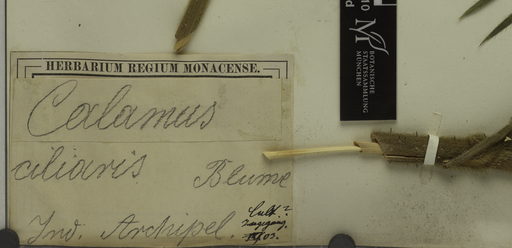 HERBARIUM REGIUM MONACENSE.
Calamus
ciliaris Blume
Ind. Archipel.
Cult.?
BOTANISCHE
STAATSSAMMLUNG
MÜNCHEN